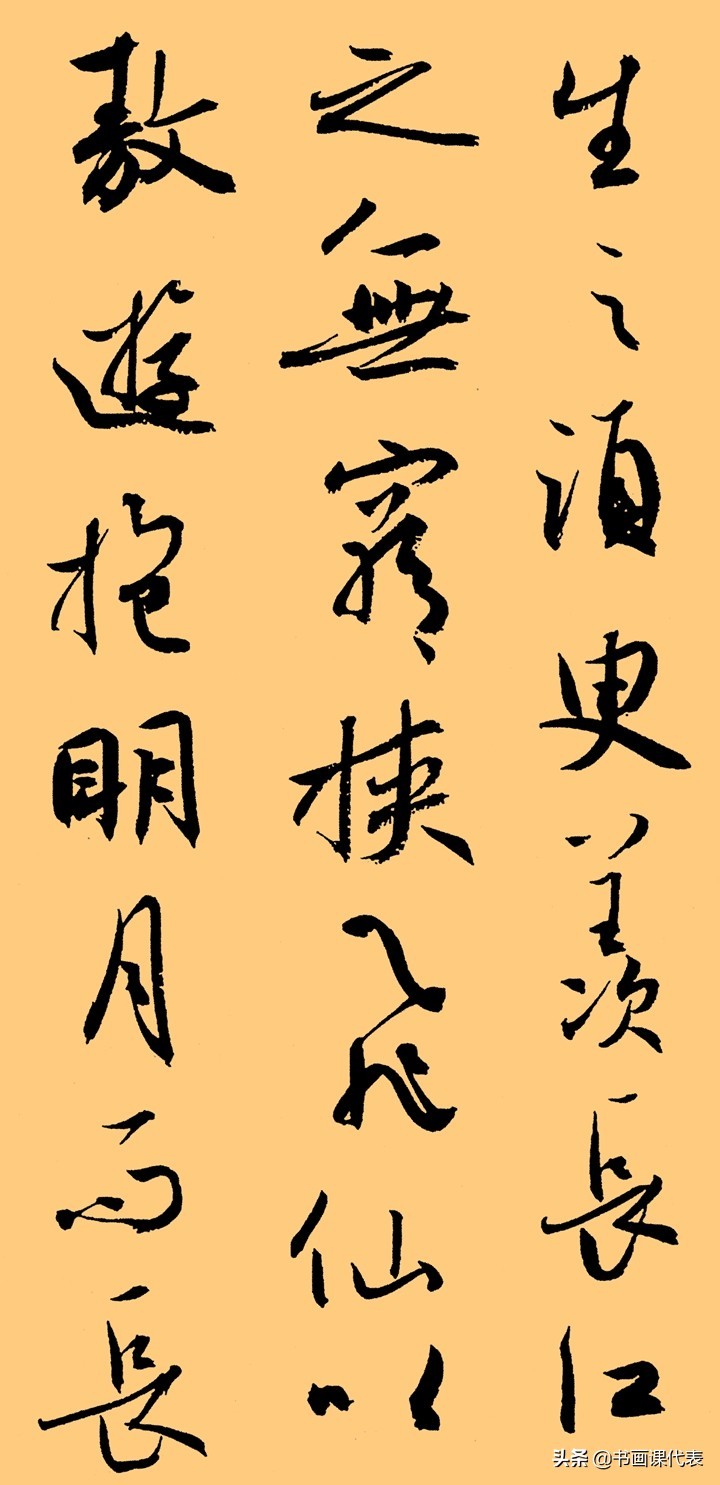 生之湏㪅羡長江
之無窮挟飛仙以
敖遊抱明月而長
头条 @书画课代表